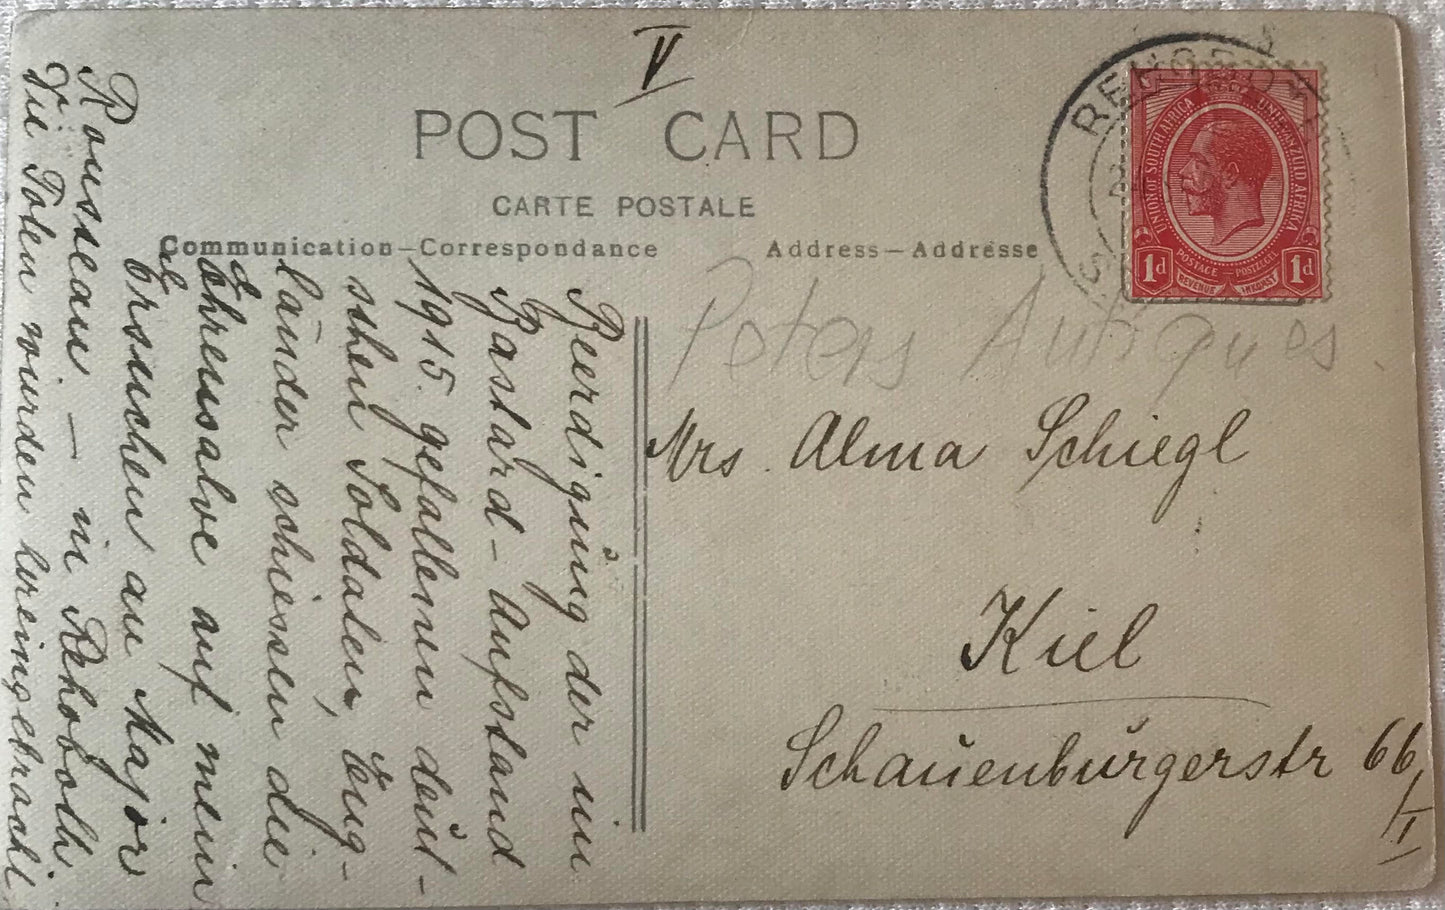 V
POST CARD
CARTE POSTALE
Communication–Correspondance
Address–Addresse
REHOBOTH
UNION OF SOUTH AFRICA
UNIE VAN ZUID AFRIKA
1d
POSTAGE
POSTZEGEL
1d
REVENUE
INKOMST
Peters Antiques.
Mrs. Alma Schiegl
Kiel
Schauenburgerstr 66
/I
Beerdigung der im
Bastard-Aufstand
1915. gefallenen deut-
schen Soldaten, Eng-
länder schiessen die
Ehrensalve auf mein
Ersuchen an Major
Rousseau. – in Rehoboth
Die Toten wurden hereingebracht